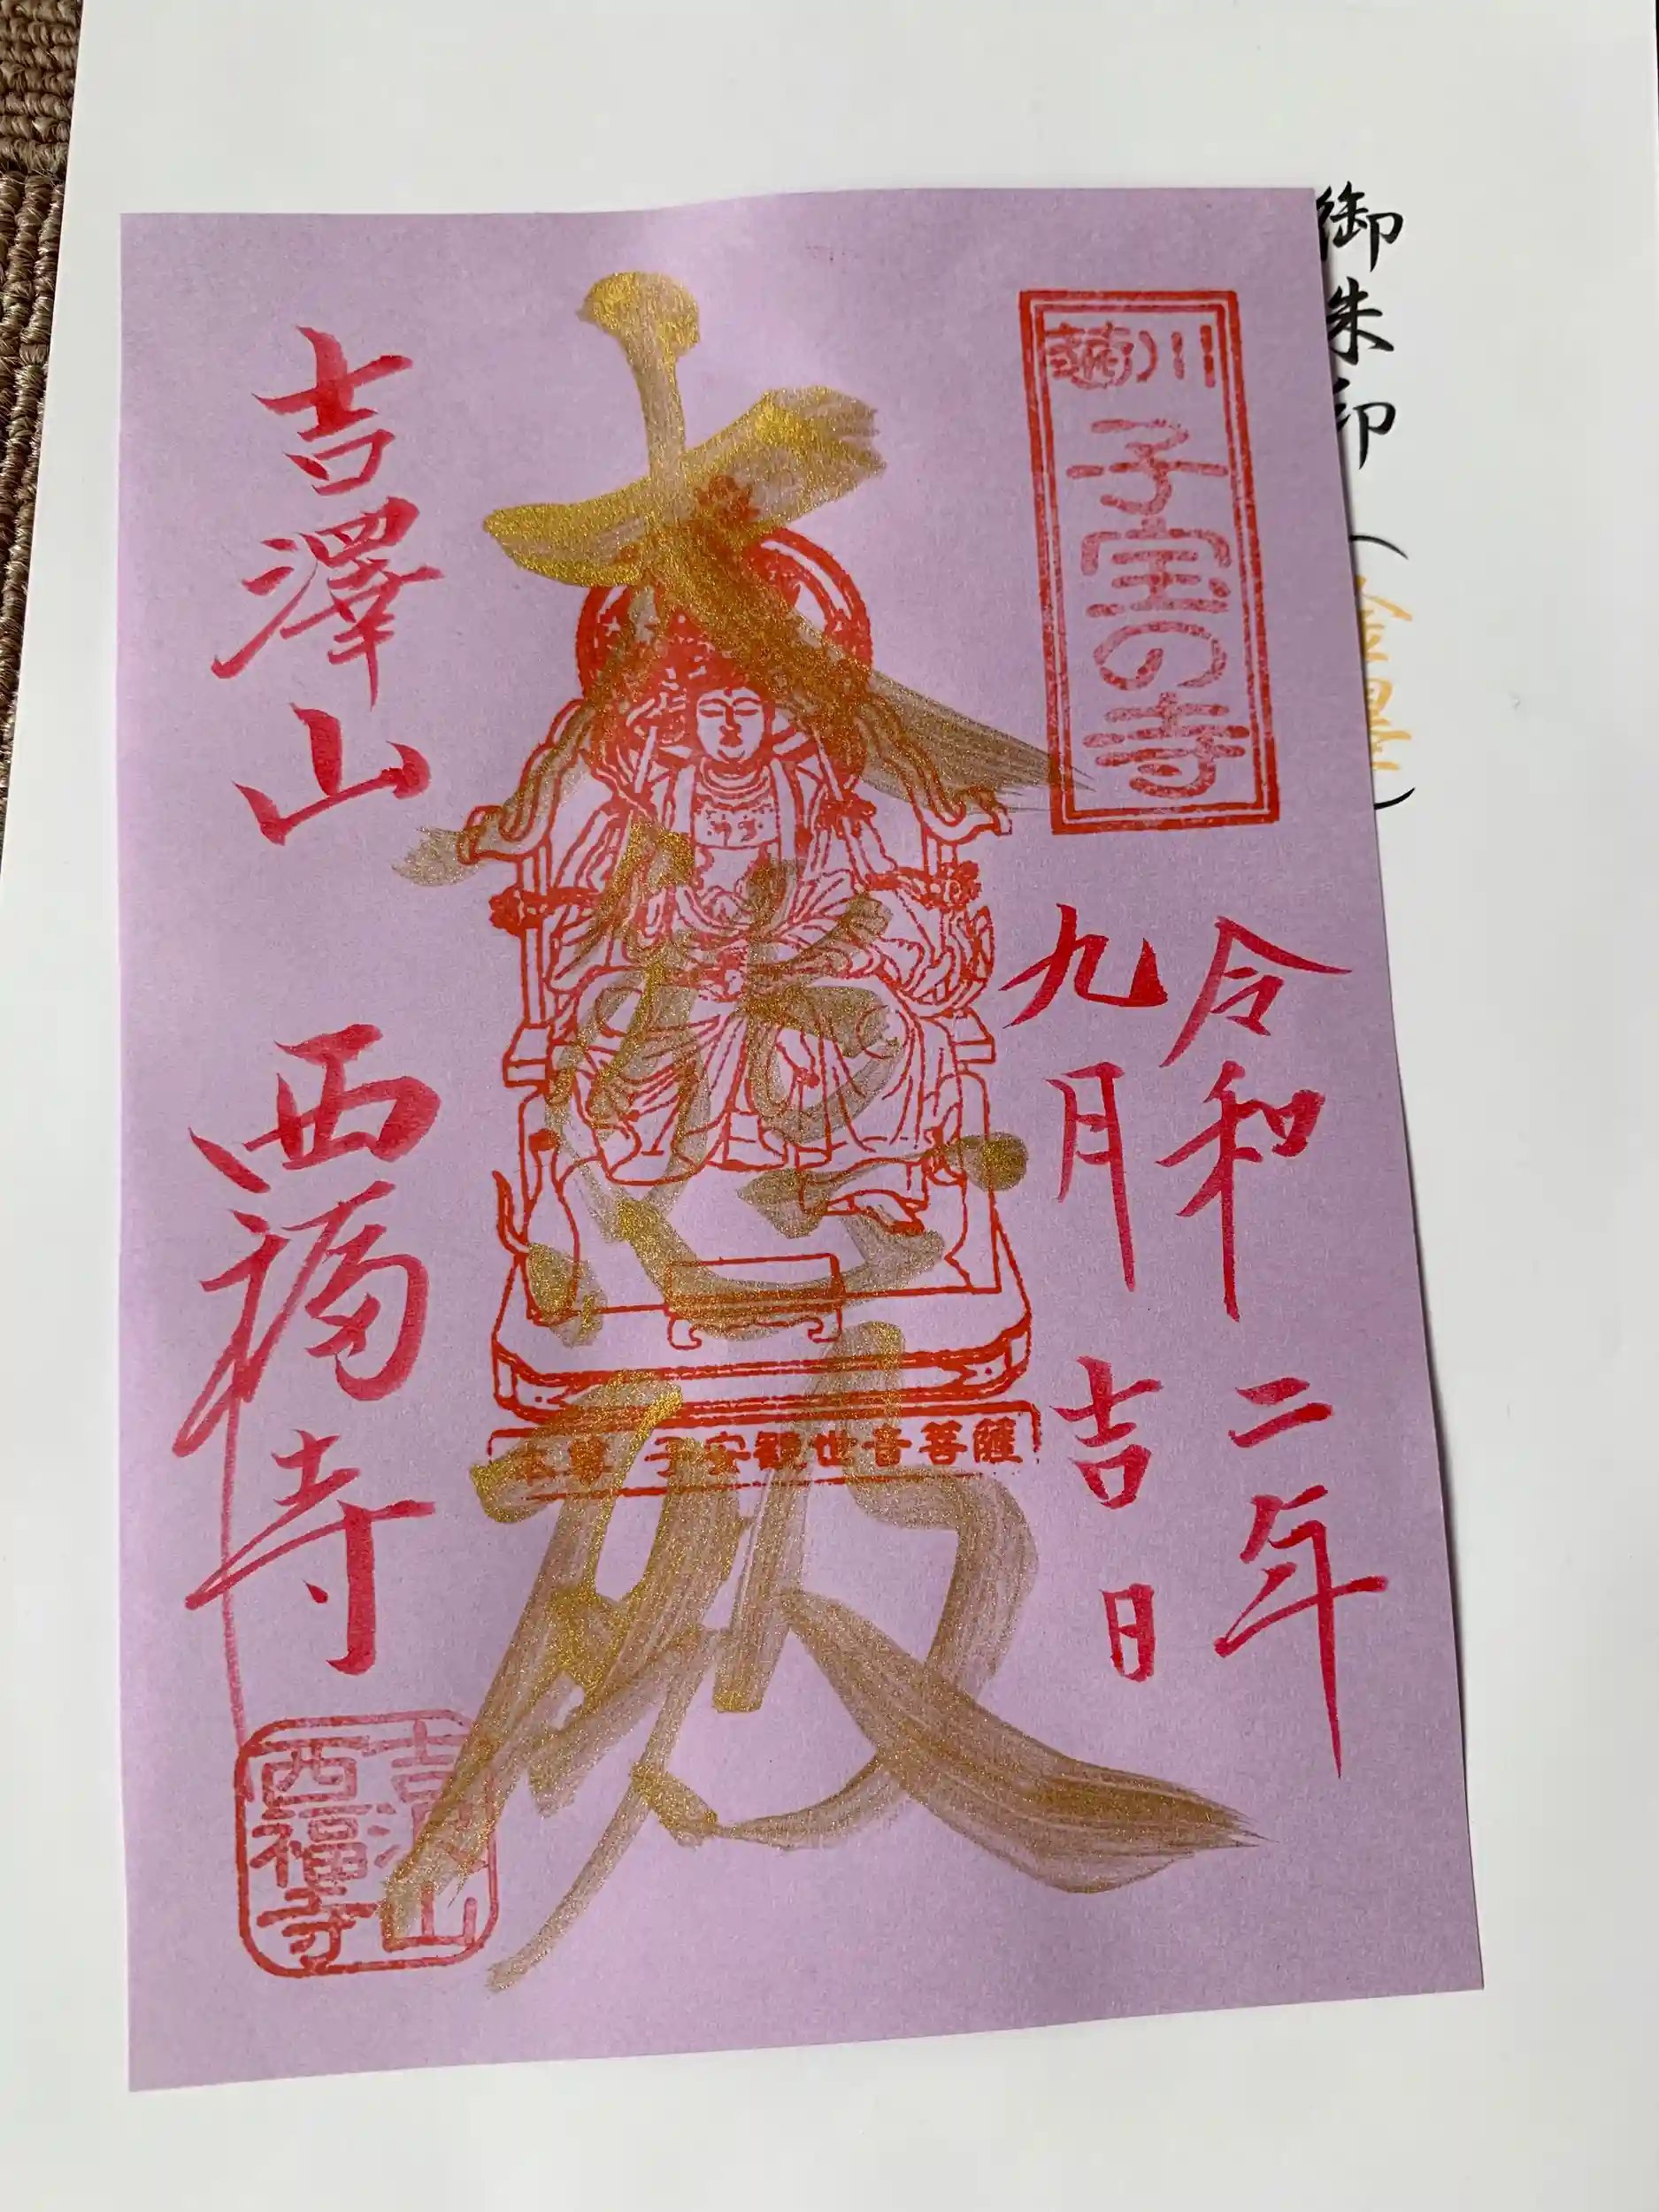 御朱印
菊川
子宝の寺
令和二年
九月吉日
大悲殿
本尊 子安観世音菩薩
吉澤山 西福寺
吉沢山
西福寺